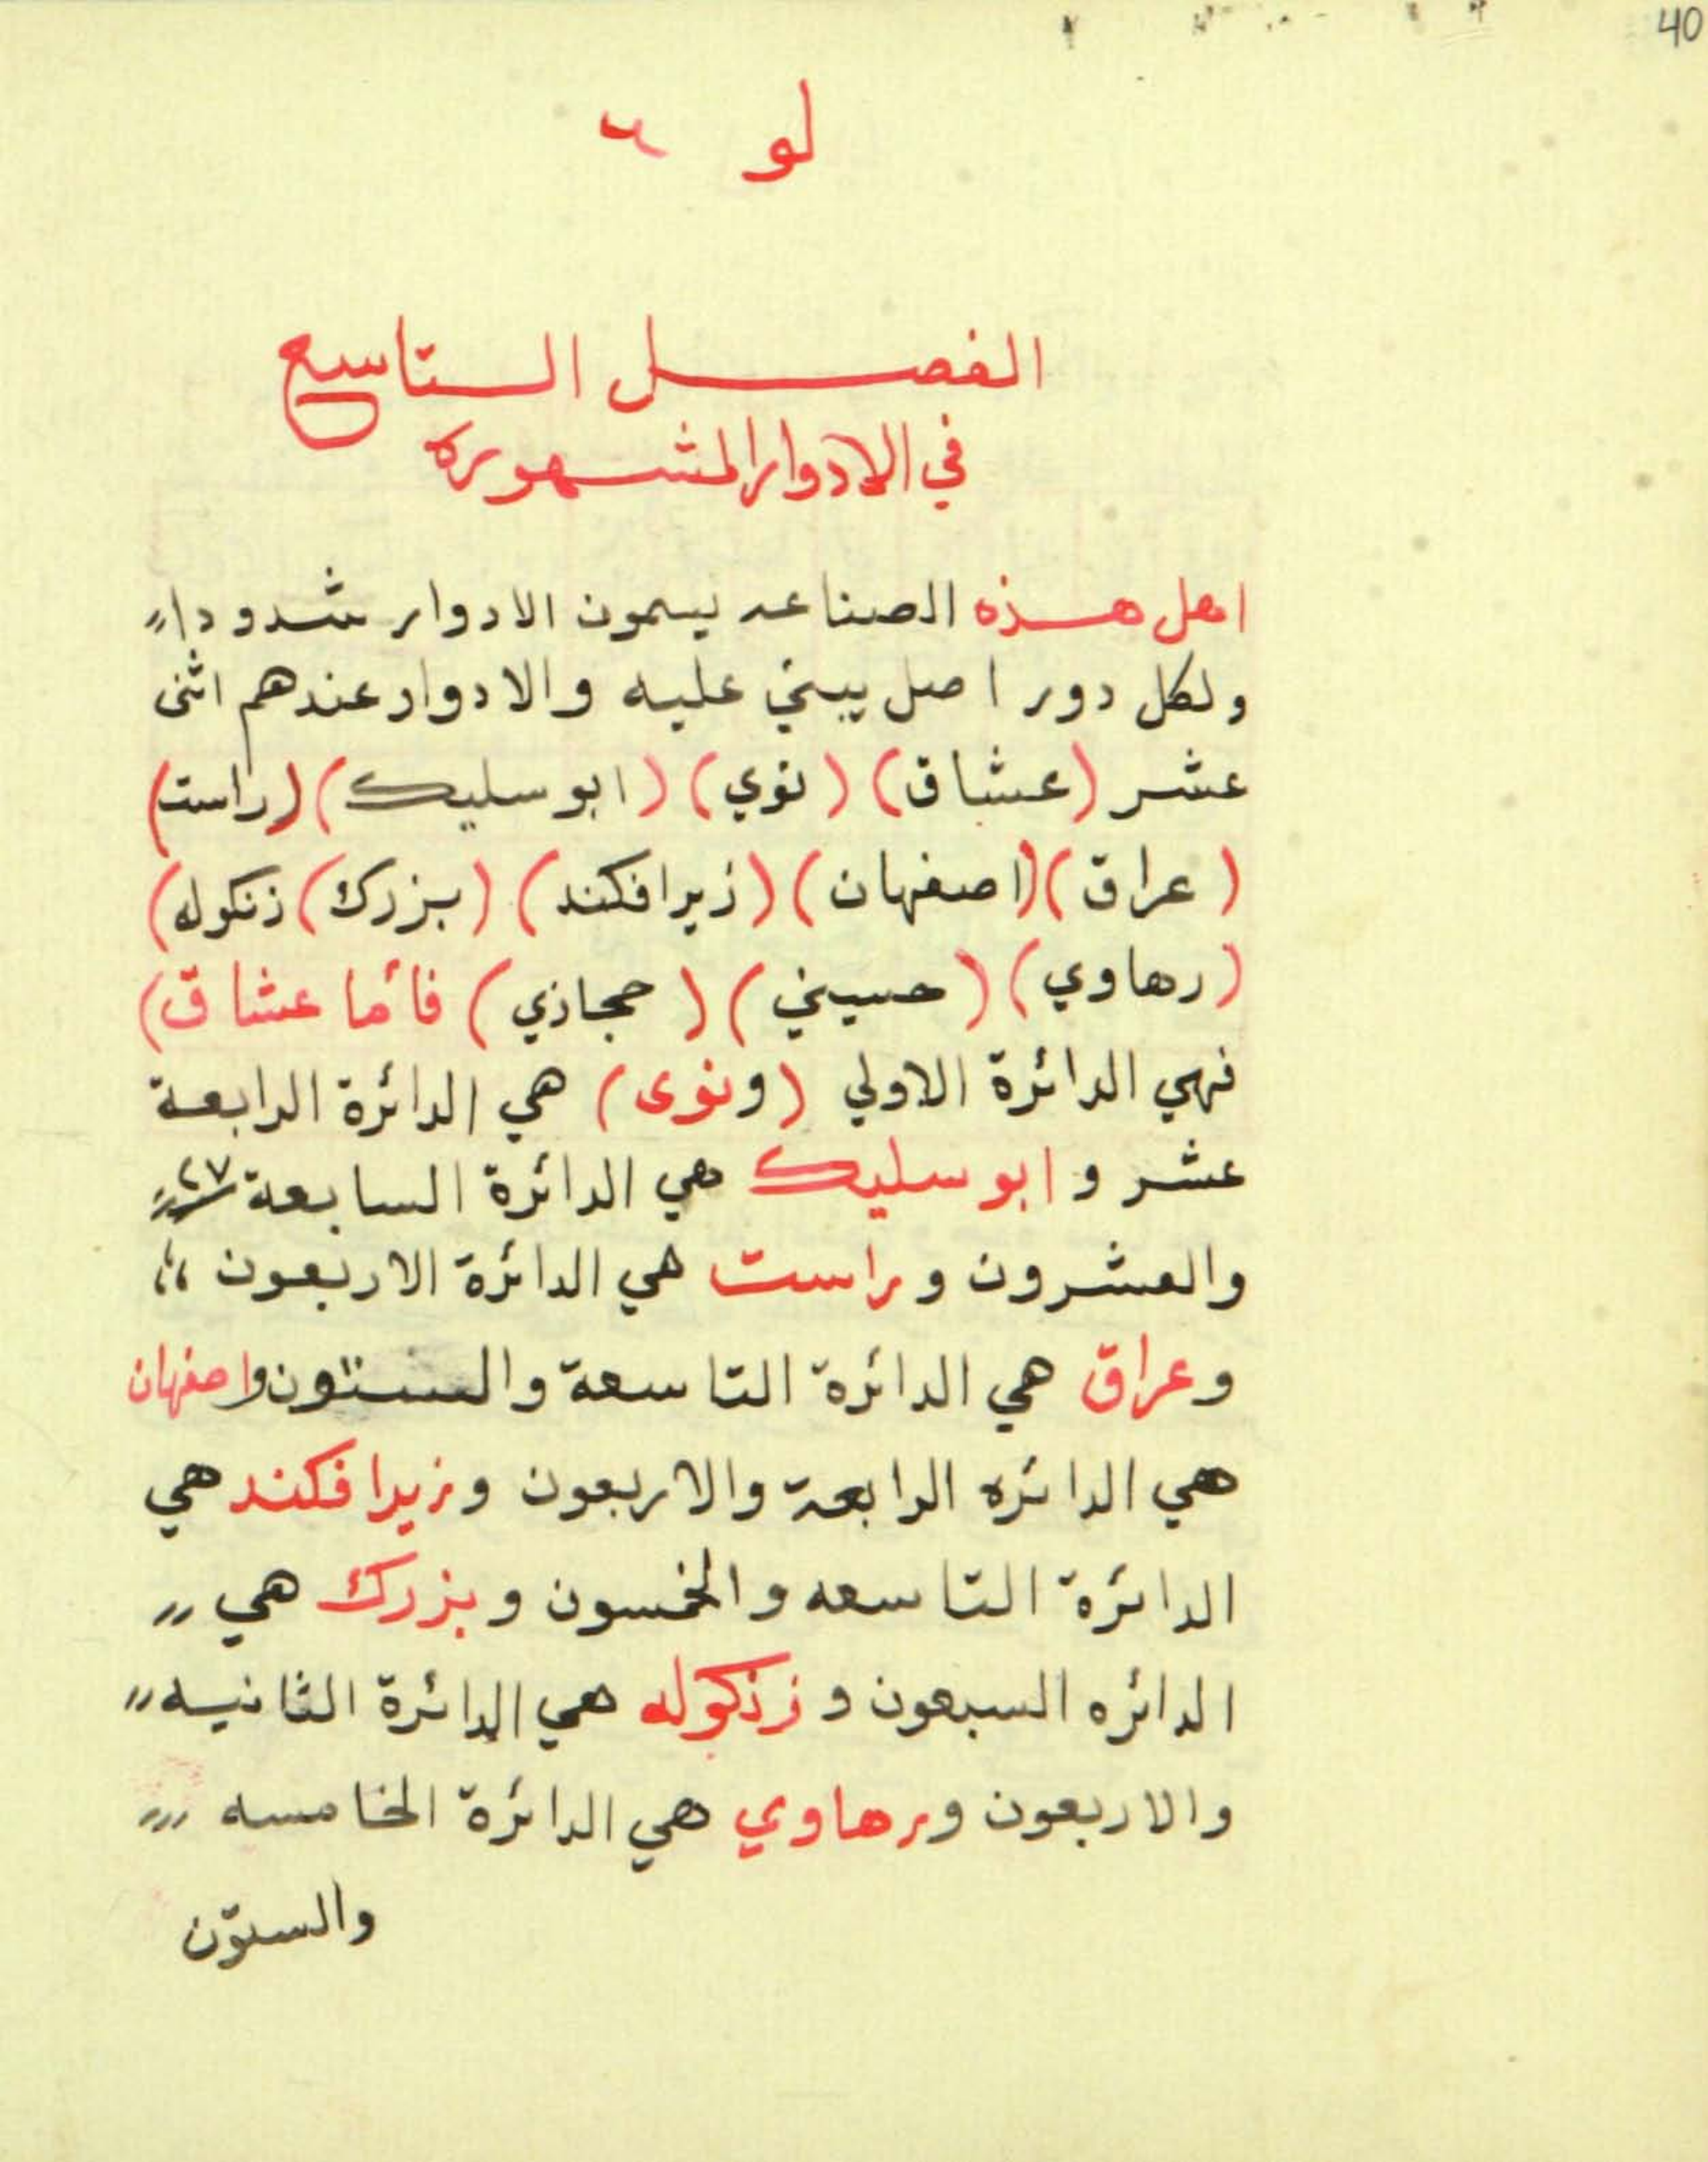 40
لو
الفصل التاسع
في الادوار المشهوره
اهل هذه الصناعه يسمون الادوار شدودا
ولكل دور اصل يبني عليه والادوار عندهم اثنى
عشر (عشاق) (نوي) (ابو سليك) (راست)
(عراق) (اصفهان) (زيرافكند) (بزرك) زنكوله)
(رهاوي) (حسيني) (حجازي) فأما عشاق)
فهي الدائرة الاولي (ونوى) هي الدائرة الرابعة
عشر و ابو سليك هي الدائرة السابعة ٢٧
والعشرون وراست هي الدائرة الاربعون
وعراق هي الدائرة التاسعة والستون واصفهان
هي الدائره الرابعة والاربعون وزيرافكند هي
الدائرة التاسعه والخمسون وبزرك هي
الدائره السبعون و زنكوله هي الدائرة الثانيه
والاربعون ورهاوي هي الدائرة الخامسه
والستون